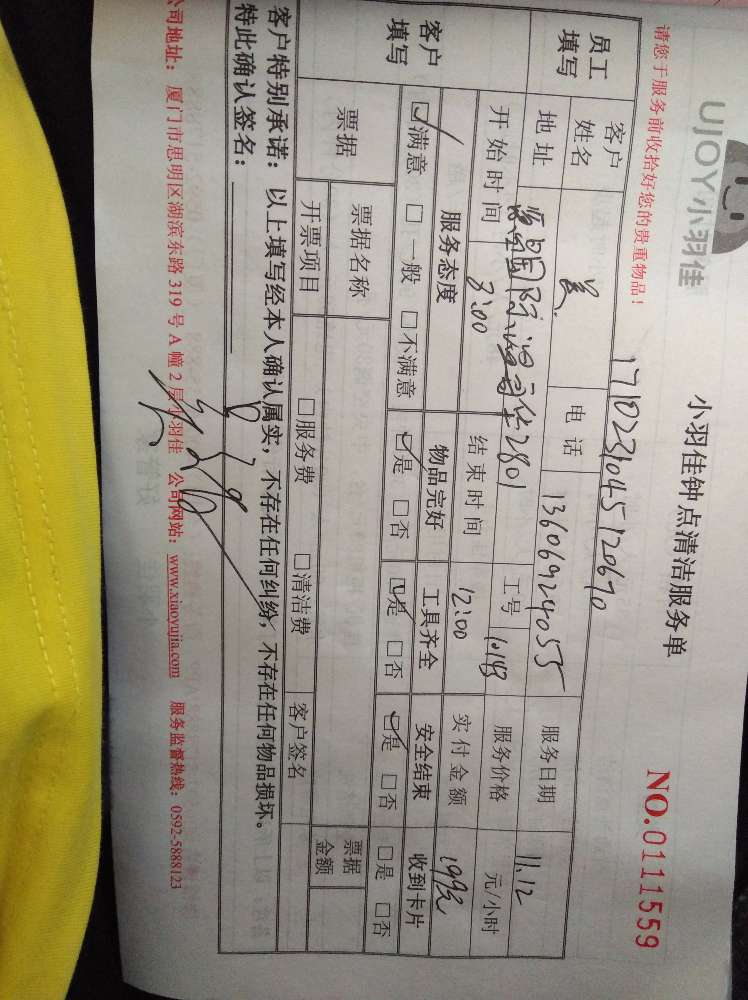 UJOY小羽佳
小羽佳钟点清洁服务单
NO.0111559
请您于服务前收拾好您的贵重物品!
1710231045120670
员工填写 客户姓名 吴 电话 13606924055 服务日期 11.12
地址 国际 2801 工号 10143 服务价格 元/小时
开始时间 3:00 结束时间 12:00 实付金额 199元
客户填写 服务态度 物品完好 工具齐全 安全结束 收到卡片
☑满意 □一般 □不满意 ☑是 □否 ☑是 □否 ☑是 □否 □是 □否
票据 票据名称 票据金额
开票项目 □服务费 □清洁费 客户签名
客户特别承诺:以上填写经本人确认属实,不存在任何纠纷,不存在任何物品损坏。
特此确认签名:
公司地址:厦门市思明区湖滨东路319号A幢2层小羽佳 公司网站:www.xiaoyujia.com 服务监督热线:0592-5888123